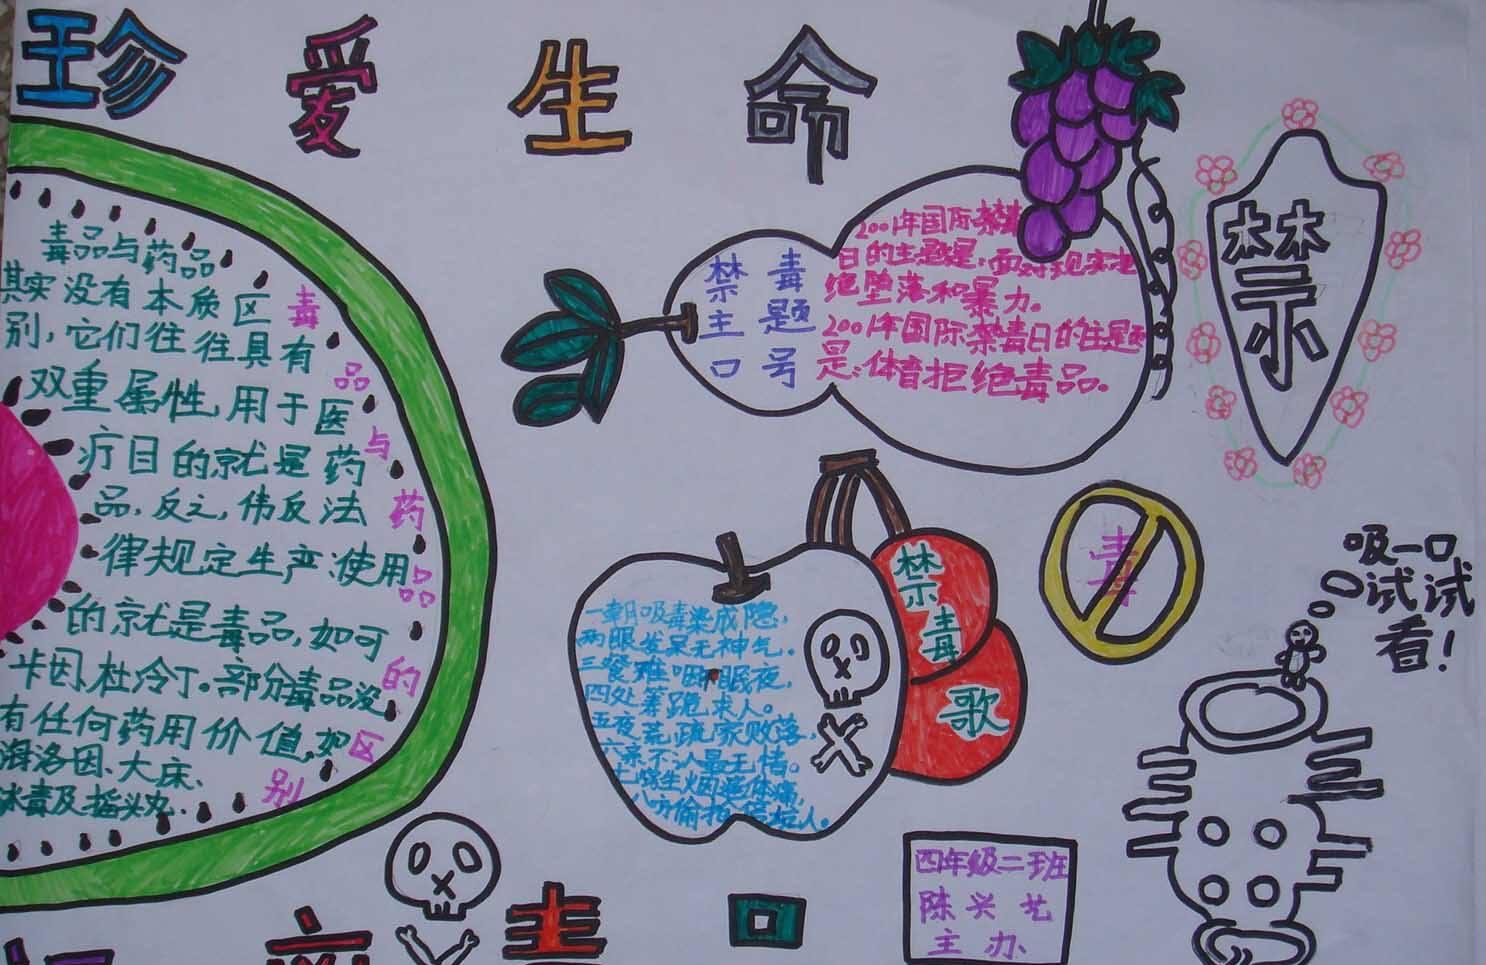 珍爱生命
毒品与药品
其实没有本质区
别，它们往往具有
双重属性，用于医
疗目的就是药
品，反之，伟反法
律规定生产、使用
的就是毒品，如可
卡因、杜冷丁。部分毒品没
有任何药用价值，如
海洛因、大床、
冰毒及摇头丸.
毒品与药品的区别
禁毒
主题
口号
2001年国际禁毒
日的主题是：面对现实拒
绝堕落和暴力。
2001年国际禁毒日的主题
是：体育拒绝毒品。
禁
毒
吸一口
试试
看！
禁毒歌
一朝吸毒染成隐，
两眼发呆无神气.
三餐难咽眠夜，
四处筹跪求人。
五夜荒疏家败落，
六亲不人最无情。
四年级二班
陈兴艺
主办
毒口